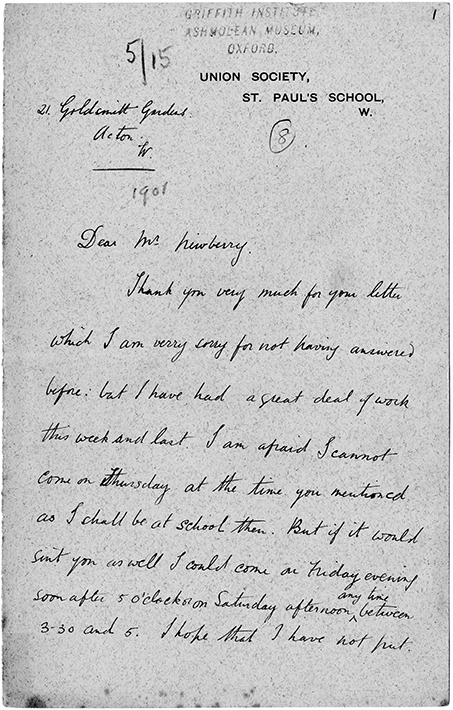 GRIFFITH INSTITUTE
ASHMOLEAN MUSEUM,
OXFORD.
1
5/15
UNION SOCIETY,
ST. PAUL'S SCHOOL,
W.
21. Goldsmith Gardens.
Acton.
W.
8
1901
Dear Mr Newberry.
Thank you very much for your letter
which I am verry sorry for not having answered
before: but I have had a great deal of work
this week and last. I am afraid I cannot
come on Thursday at the time you mentioned
as I shall be at school then. But if it would
suit you as well I could come on Friday evening
soon after 5 o'clock or on Saturday afternoon any time between
3-30 and 5. I hope that I have not put